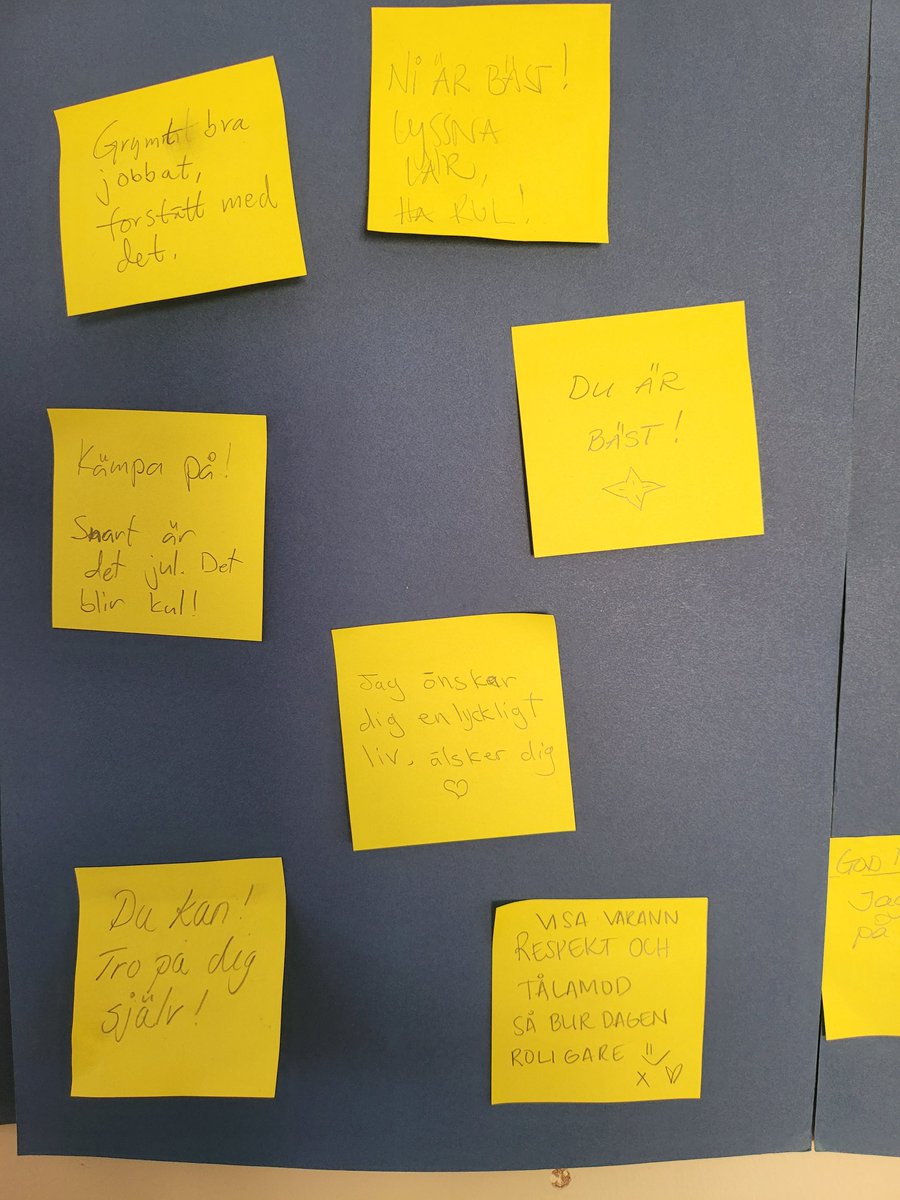 Grymt bra
jobbat,
forstätt med
det.
NI ÄR BÄST!
LYSSNA
LÄR,
HA KUL!
DU ÄR
BÄST!
Kämpa på!
Snart är
det jul. Det
blir kul!
Jag önsker
dig en lyckligt
liv, älsker dig
Du kan!
Tro på dig
själv!
VISA VARANN
RESPEKT OCH
TÅLAMOD
SÅ BLIR DAGEN
ROLIGARE
X
GOD
på